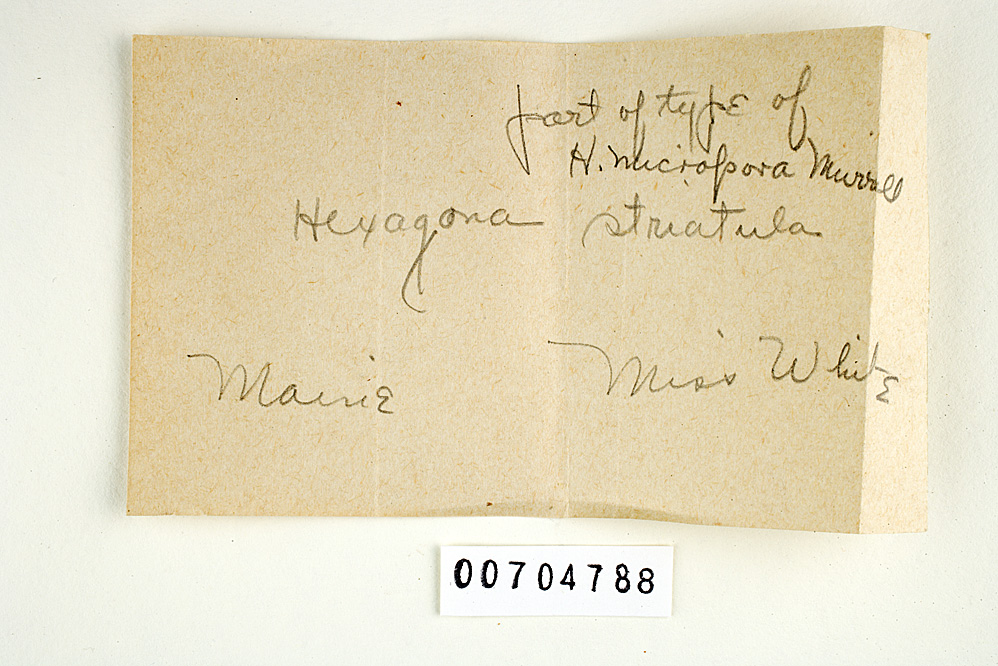 part of type of
H. micropora Murrill
Hexagona striatula
Maine Miss White
00704788